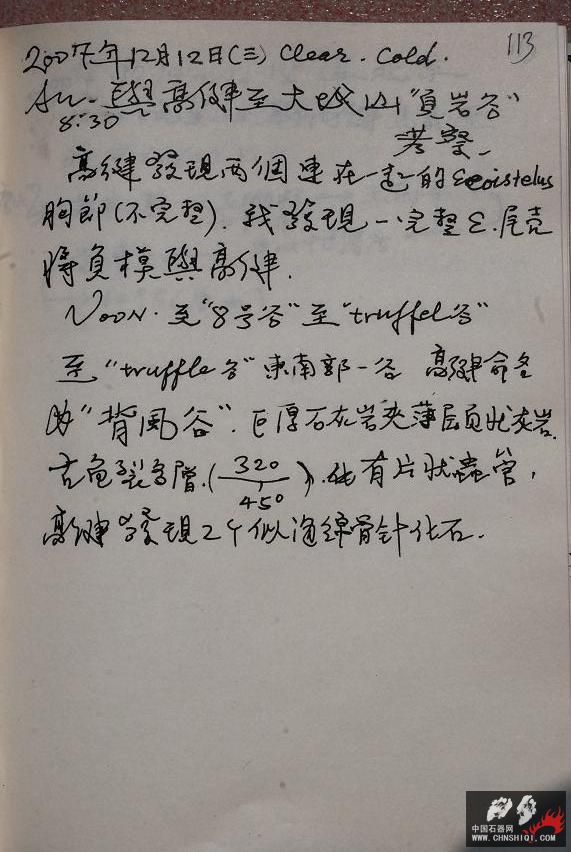 113
2007年12月12日(三) Clear. Cold.
Am. 與高健至大城山"頁岩谷"
8:30 考察.
高健發現兩個連在一起的Eoistelus
胸節(不完整). 我發現一个完整E.尾壳
將負模與高健.
Noon. 至"8号谷"至"truffel谷"
至"truffle谷"東南部一谷 高健命名
為"背風谷". 巨厚石灰岩夾薄层頁状灰岩.
(320
45°). 有片狀蟲管,
高健發現2个似海绵骨針化石.
中国石器网
WWW.CHNSHIQI.COM